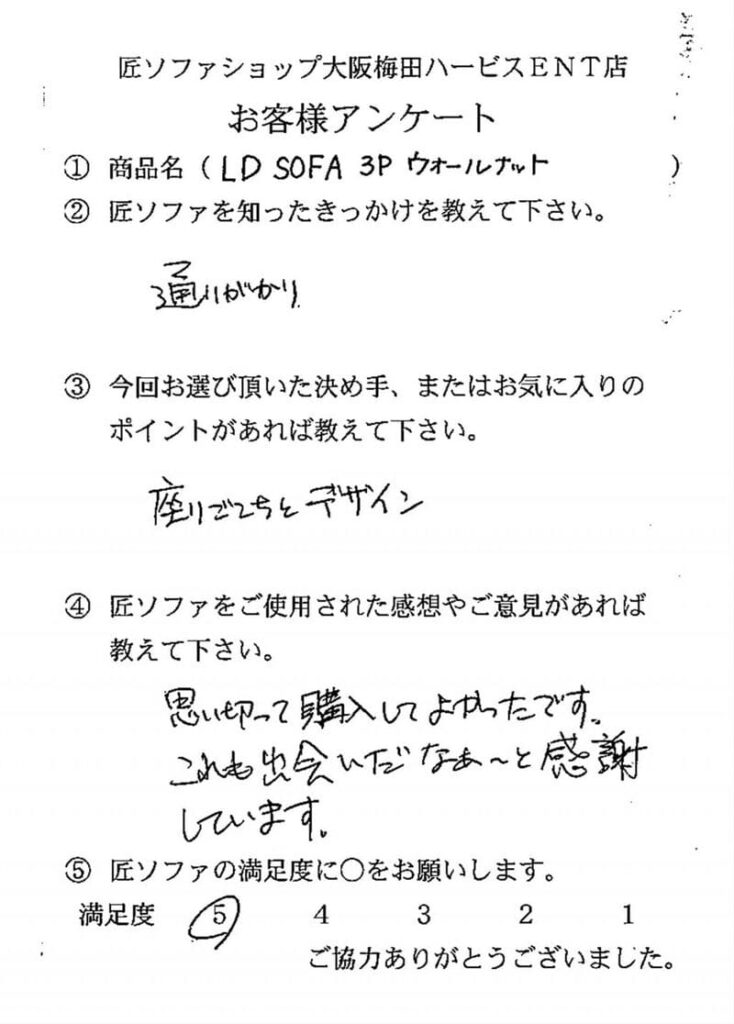 匠ソファショップ大阪梅田ハービスENT店
お客様アンケート
① 商品名（LD SOFA 3P ウォールナット）
② 匠ソファを知ったきっかけを教えて下さい。
通りがかり
③ 今回お選び頂いた決め手、またはお気に入りの
ポイントがあれば教えて下さい。
座りごこちとデザイン
④ 匠ソファをご使用された感想やご意見があれば
教えて下さい。
思い切って購入してよかったです。
これも出会いだなぁ〜と感謝
しています。
⑤ 匠ソファの満足度に○をお願いします。
満足度 5 4 3 2 1
ご協力ありがとうございました。